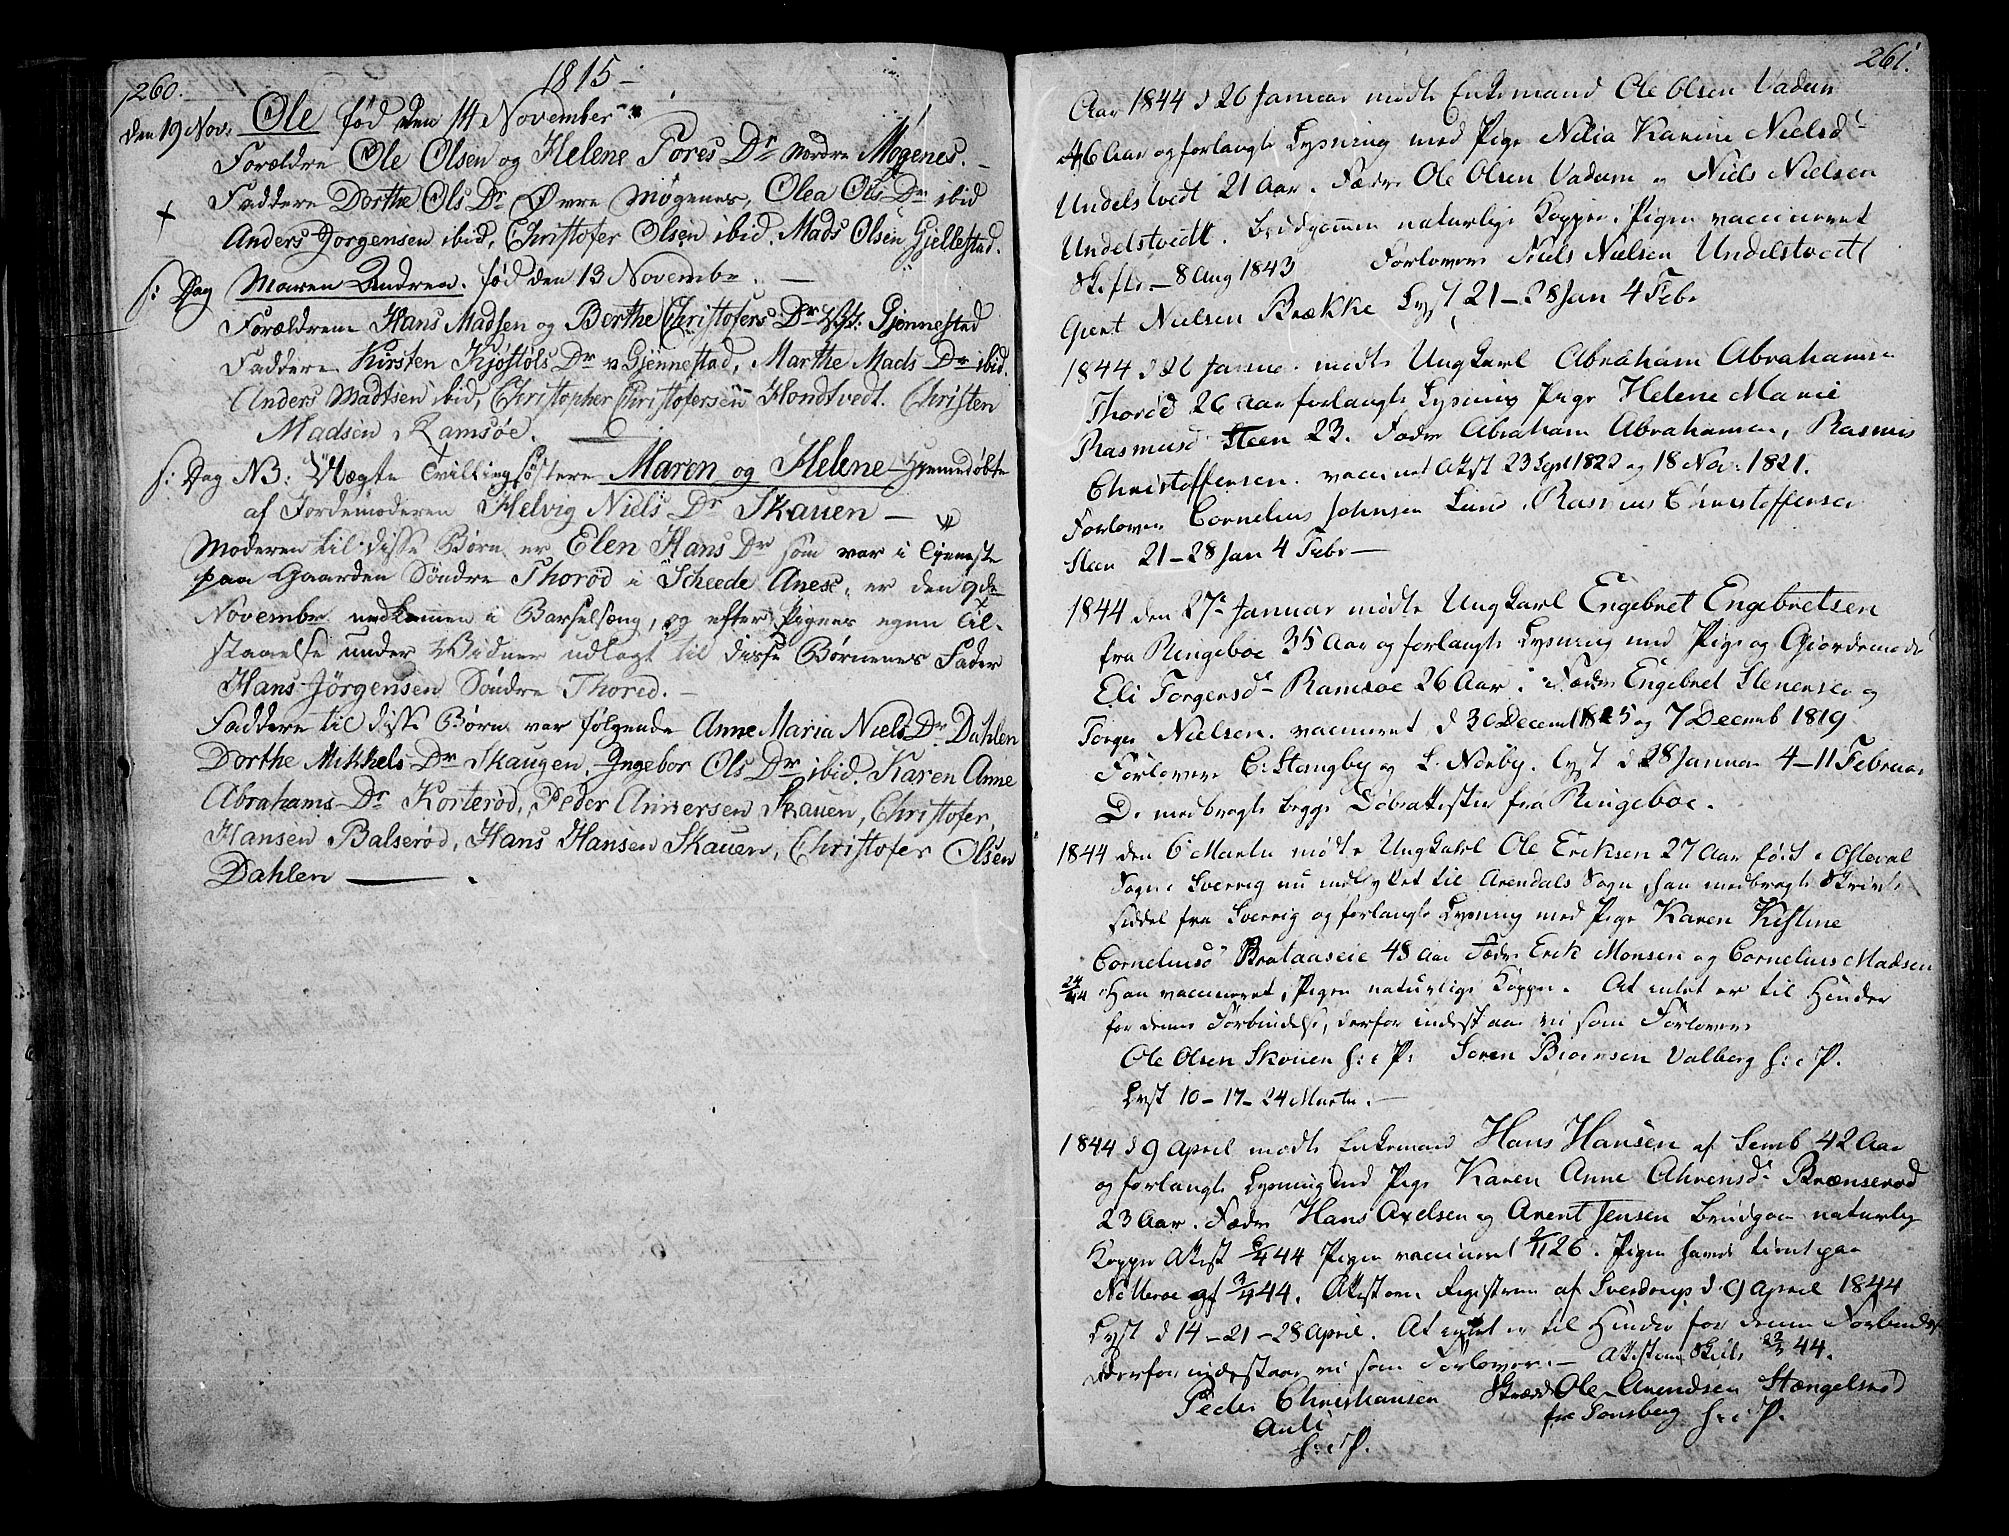 260.
1815 –
den 19 Nov: Ole fød den 14 November
Forældre Ole Olsen og Helene Tores Dr Nordre Møgenes. –
Faddere Dorthe Ols Dr Øvre Møgenes, Olea Ols Dr ibid
Anders Jørgensen ibid, Christofer Olsen ibid, Mads Olsen Gjellestad.
s: Dag Maren Andrea. fød den 13 Novembr. —
Forældrene Hans Madsen og Berthe Christofers Dr Gjennestad
Faddere Kirsten Kjøstols Dr Gjennestad, Marthe Mads Dr ibid.
Anders Madtsen ibid, Christopher Christofersen Hondtvedt. Christen
Madsen Ramsøe. —
s: Dag NB: Uægte Tvilling søstere Maren og Helene hjemmedøbte
af Jordemoderen Helvig Niels Dr Skauen —
Moderen til disse Børn er Elen Hans Dr som var i Tjeneste
paa Gaarden Søndre Thorød i Scheede Anex, er den 9de
Novembr nedkommen i Barselseng, og efter Pigens egen Til-
staaelse under Vidner udlagt til disse Børnenes Fader
Hans Jörgensen Söndre Thorød. –
Faddere til disse Børn var følgende Anne Maria Niels Dr Dahlen
Dorthe Mikkels Dr Skaugen, Ingebor Ols Dr ibid. Karen Anne
Abrahams Dr Korterød, Peder Annersen Skauen, Christofer
Hansen Balserød, Hans Hansen Skauen, Christofer Olsen
Dahlen —
261.
Aar 1844 d 26 Januar mødte Enkemand Ole Olsen Vadum
46 Aar og forlangte Lysning med Pige Nilia Karine Nielsd
Undelstvedt 21 Aar. Fædre Ole Olsen Vadum og Niels Nielsen
Undelstvedt. Brudgommen naturlige Kopper. Pigen vaccineret
Skifte – 8 Aug 1843 Forlovere Niels Nielsen Undelstvedt
Gient Nielsen Brække Lyst 21–28 Jan 4 Febr
1844 d 26 Januar mødte Ungkarl Abraham Abrahams
Thorød 26 Aar forlangte Lysning Pige Helene Marie
Rasmusd Steen 23. Fædre Abraham Abrahamsen, Rasmus
Christoffersen. vaccineret Attest 23 Sept 1822 og 18 Nov: 1821.
Forlovere Cornelius Johnsen Lund, Rasmus Christoffersen
Steen 21–28 Jan 4 Febr —
1844 den 27 Januar mødte Ungkarl Engebret Engebretsen
fra Ringeboe 35 Aar og forlangte Lysning med Pige og Giordemoder
Eli Torgersd Ramsoe 26 Aar. Fædre Engebret Stenersen og
Torger Nielsen. vaccineret d 30 Decemb 1815 og 7 Decemb 1819
Forlovere C: Stangby og L. Norby. Lyst d 28 Januar 4–11 Februar
De medbragte begge Døbeattester fra Ringeboe.
1844 den 6 Marts mødte Ungkarl Ole Eriksen 27 Aar født i Osteval
Sogn i Sverrig nu indflyttet til Arendals Sogn, han medbragte Skrivte
siddel fra Sverrig og forlangte Lysning med Pige Karen Kistine
Corneliusd Brataaseie 48 Aar Fædre Erik Monsen og Cornelius Madsen
24/4 44 Han vaccineret, Pigen naturlige Kopper. At intet er til Hinder
for denne Forbindelse, derfor indestaae vi som Forlovere
Ole Olsen Skouen h: i P: Søren Biørnsen Valberg h: i P.
Lyst 10–17–24 Marts. —
1844 d 9 April mødte Enkemand Hans Hansen af Semb 42 Aar
og forlangte Lysning med Pige Karen Anne Ahrensd Brænserød
23 Aar. Fædre Hans Axelsen og Arent Jensen Brudgom naturlige
Kopper Attest 6/4 44 Pigen vaccineret 26. Pigen haver tient paa
Nøtteroe af 3/4 44. Attest om Registrene af Sverdrup d 9 April 1844
Lyst d 14–21–28 April. At intet er til Hinder for denne Forbindelse
derfor indestaae vi som Forlovere. – Attest om Skifte 22/3 44.
Peder Christiansen Skrædder Ole Arendsen Stængelsrød
Auli fra Tønsberg h: i P.
h: i P.